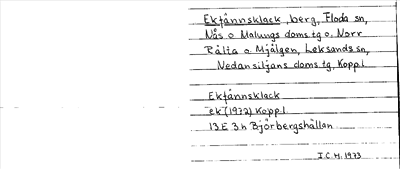 Ektjännsklack, berg, Floda sn,
Nås o Malungs doms.tg o. Norr
Rälta o. Mjälgen, Leksands sn,
Nedansiljans doms.tg, Koppl.
Ektjännsklack
ek (1972) Koppl
13E 3h Björbergshällan
I.C.H. 1973